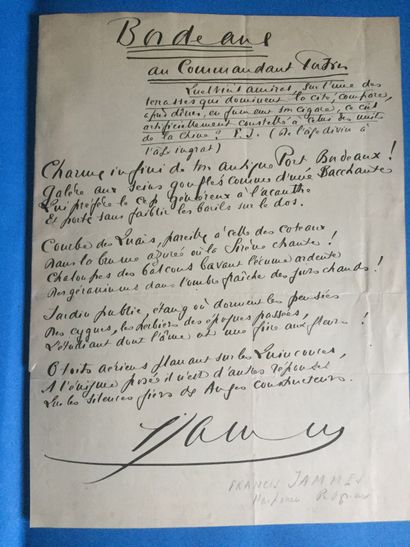 Bordeaux
au Commandant
Quel vieil amiral, sur l'une des
terrasses qui dominent la cité, compare,
après dîner, en fumant son cigare, ce ciel
artificiellement constellé à celui des nuits
de la Chine? F. J. (De l'âge divin à
l'âge ingrat)
Charme infini de ton antique Port Bordeaux!
Galère aux seins gonflés comme d'une Bacchante
Lui préfère le cep généreux à l'acanthe
Et porte sans faiblir les barils sur le dos.
Courbe des Quais, pareille à celle des coteaux!
Dans la brume azurée où la Sirène chante!
Chaloupes des balcons bavant l'écume ardente
Des géraniums dans l'ombre fraîche des jours chauds!
Jardin public, étang où dorment les pensées
Des cygnes, les des époques passées,
L'étudiant dont l'âme est une fine aux fleurs!
O toits aériens planant sur les Quinconces,
A l'énigme posée il n'est d'autres réponses
Que les silences fiers de Anges constructeurs.
Jammes
FRANCIS JAMMES